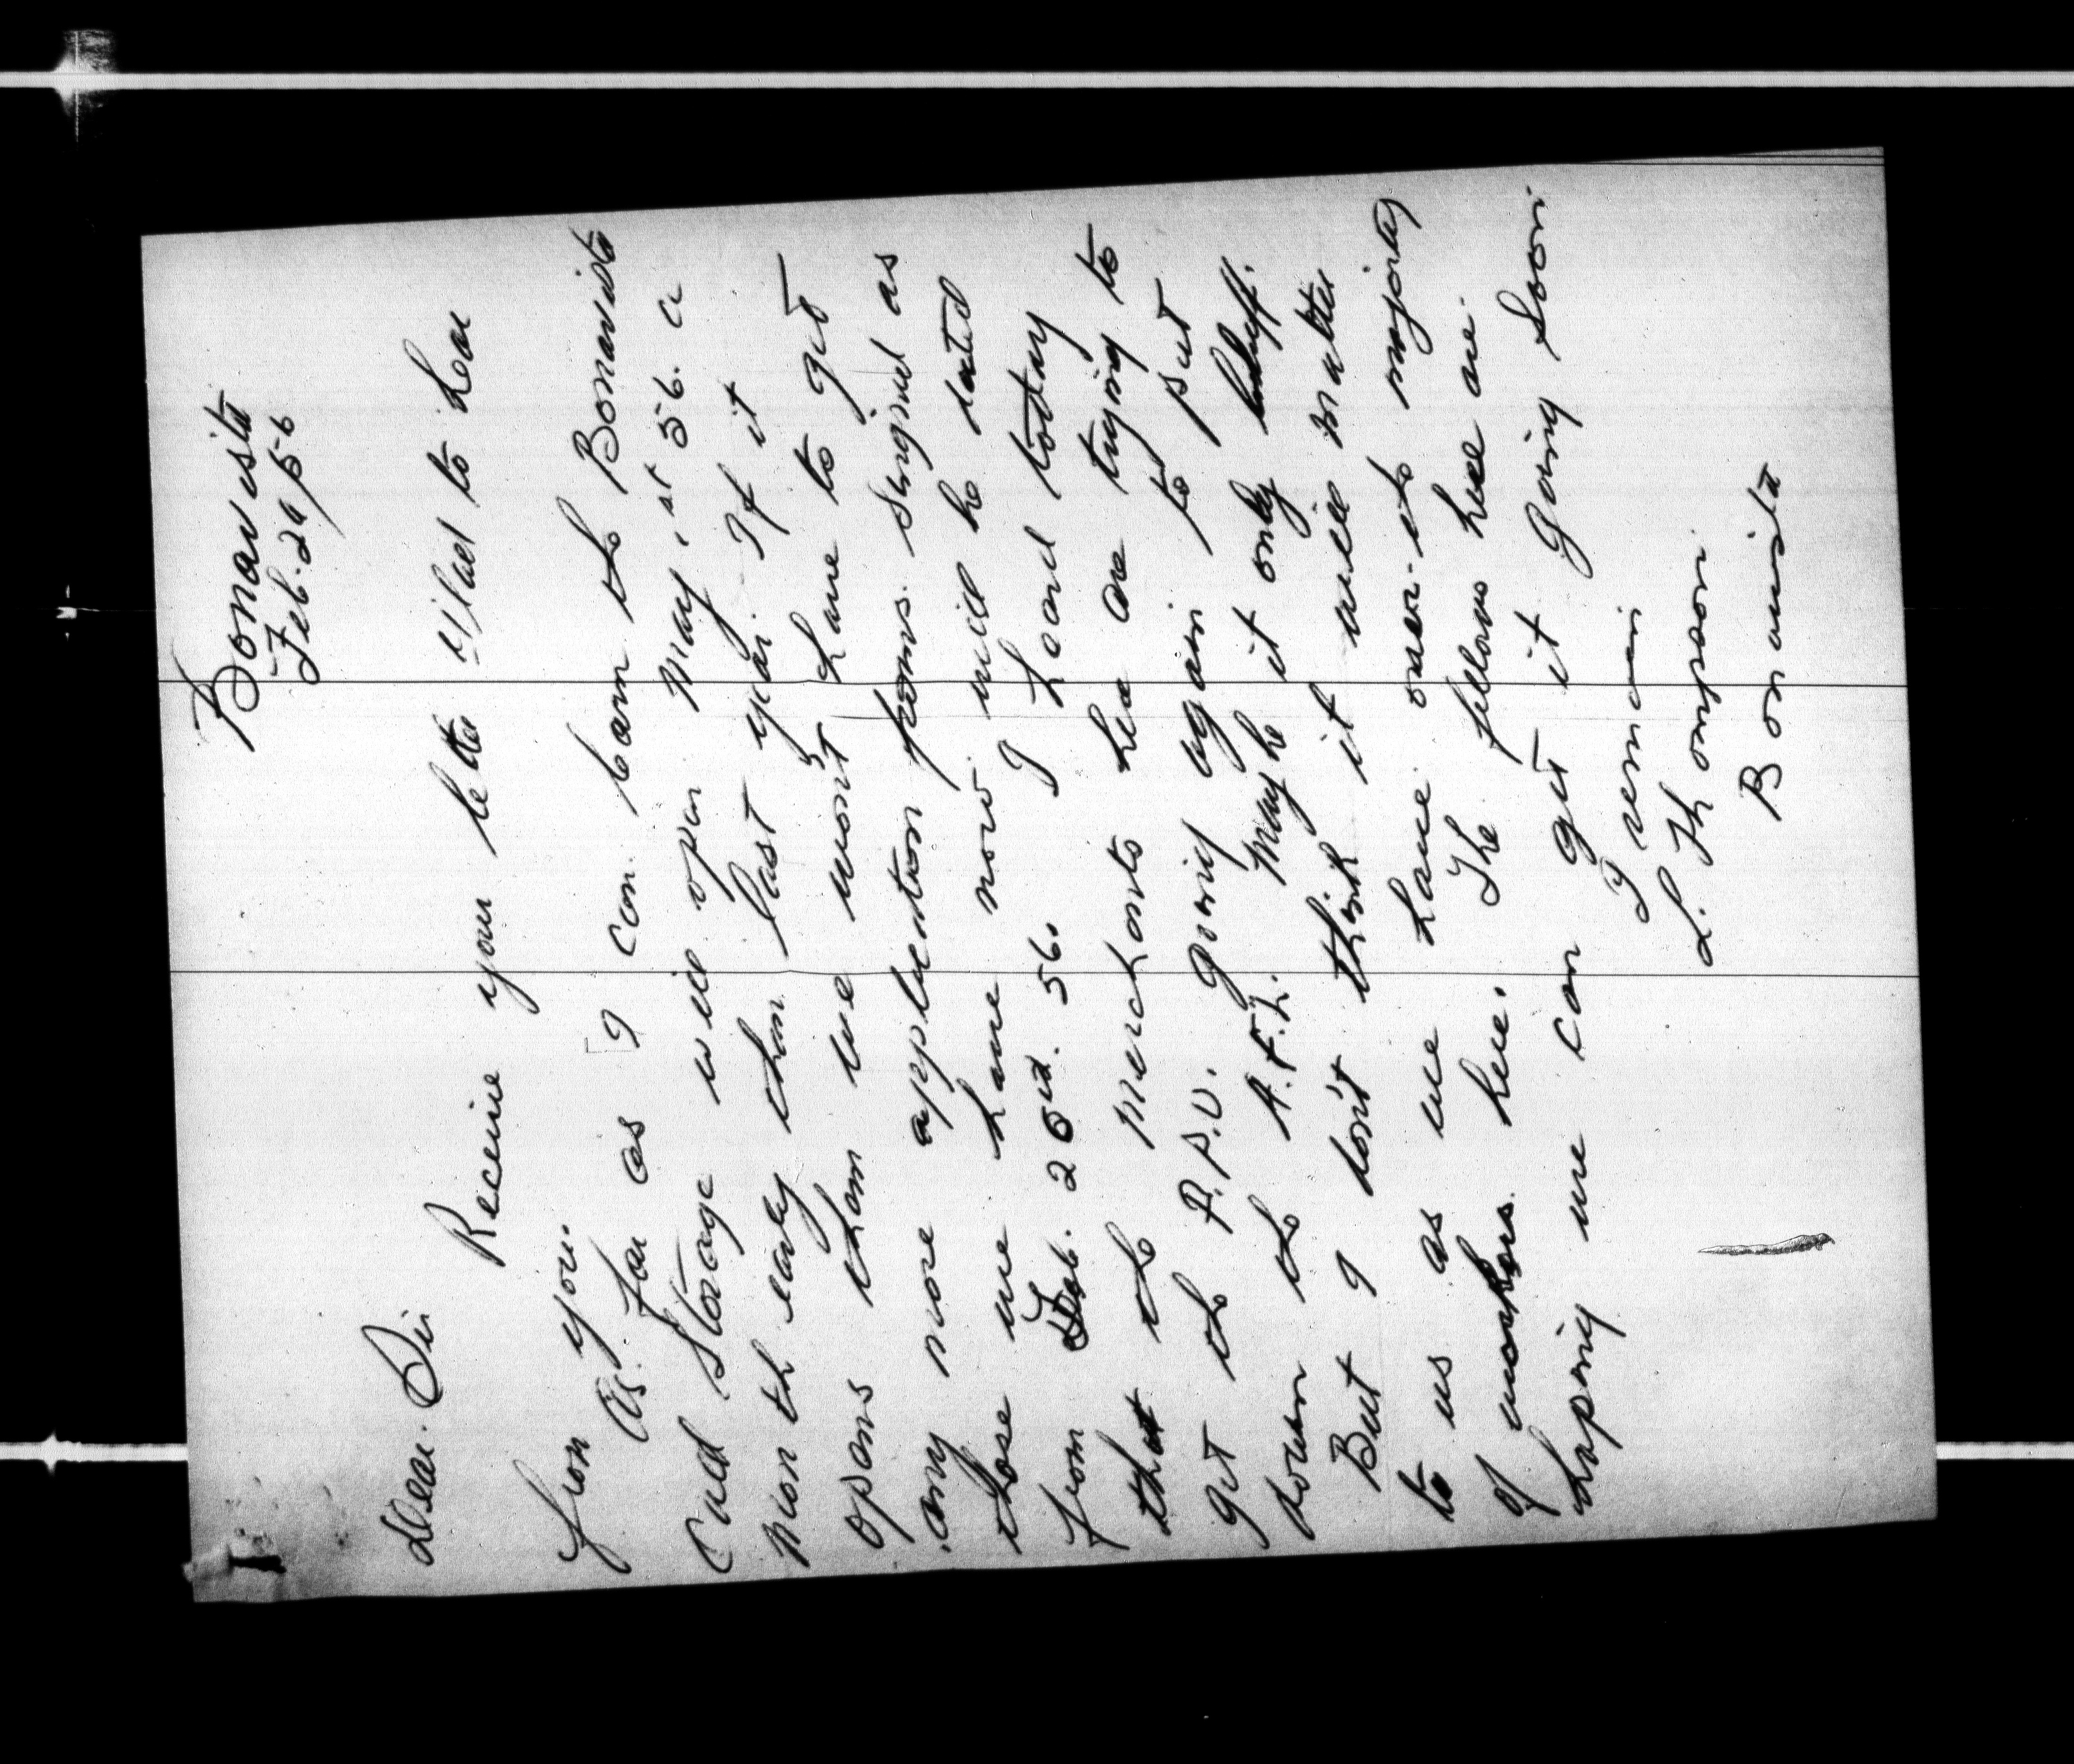 Bonavista
Feb. 29/56
Dear. Sir
Receive your letter Glad to hear
from you.
As far as I can learn the Bonavista
Cold Storage will open May, 1st 56. a
Month early than last year. If it
opens then we won't have to get
any more application forms. singned as
those we have now will be dated
from Feb. 20th. 56. I heard today
that the Merchants here are trying to
get the F.P.U. going again to put
down the A.F.L. Maybe it only bluff.
But I don't think it will matter
to us as we have over the majority
of workers here. The fellows here are
hoping we can get it going soon.
I remain
L. Thompson
Bonavista